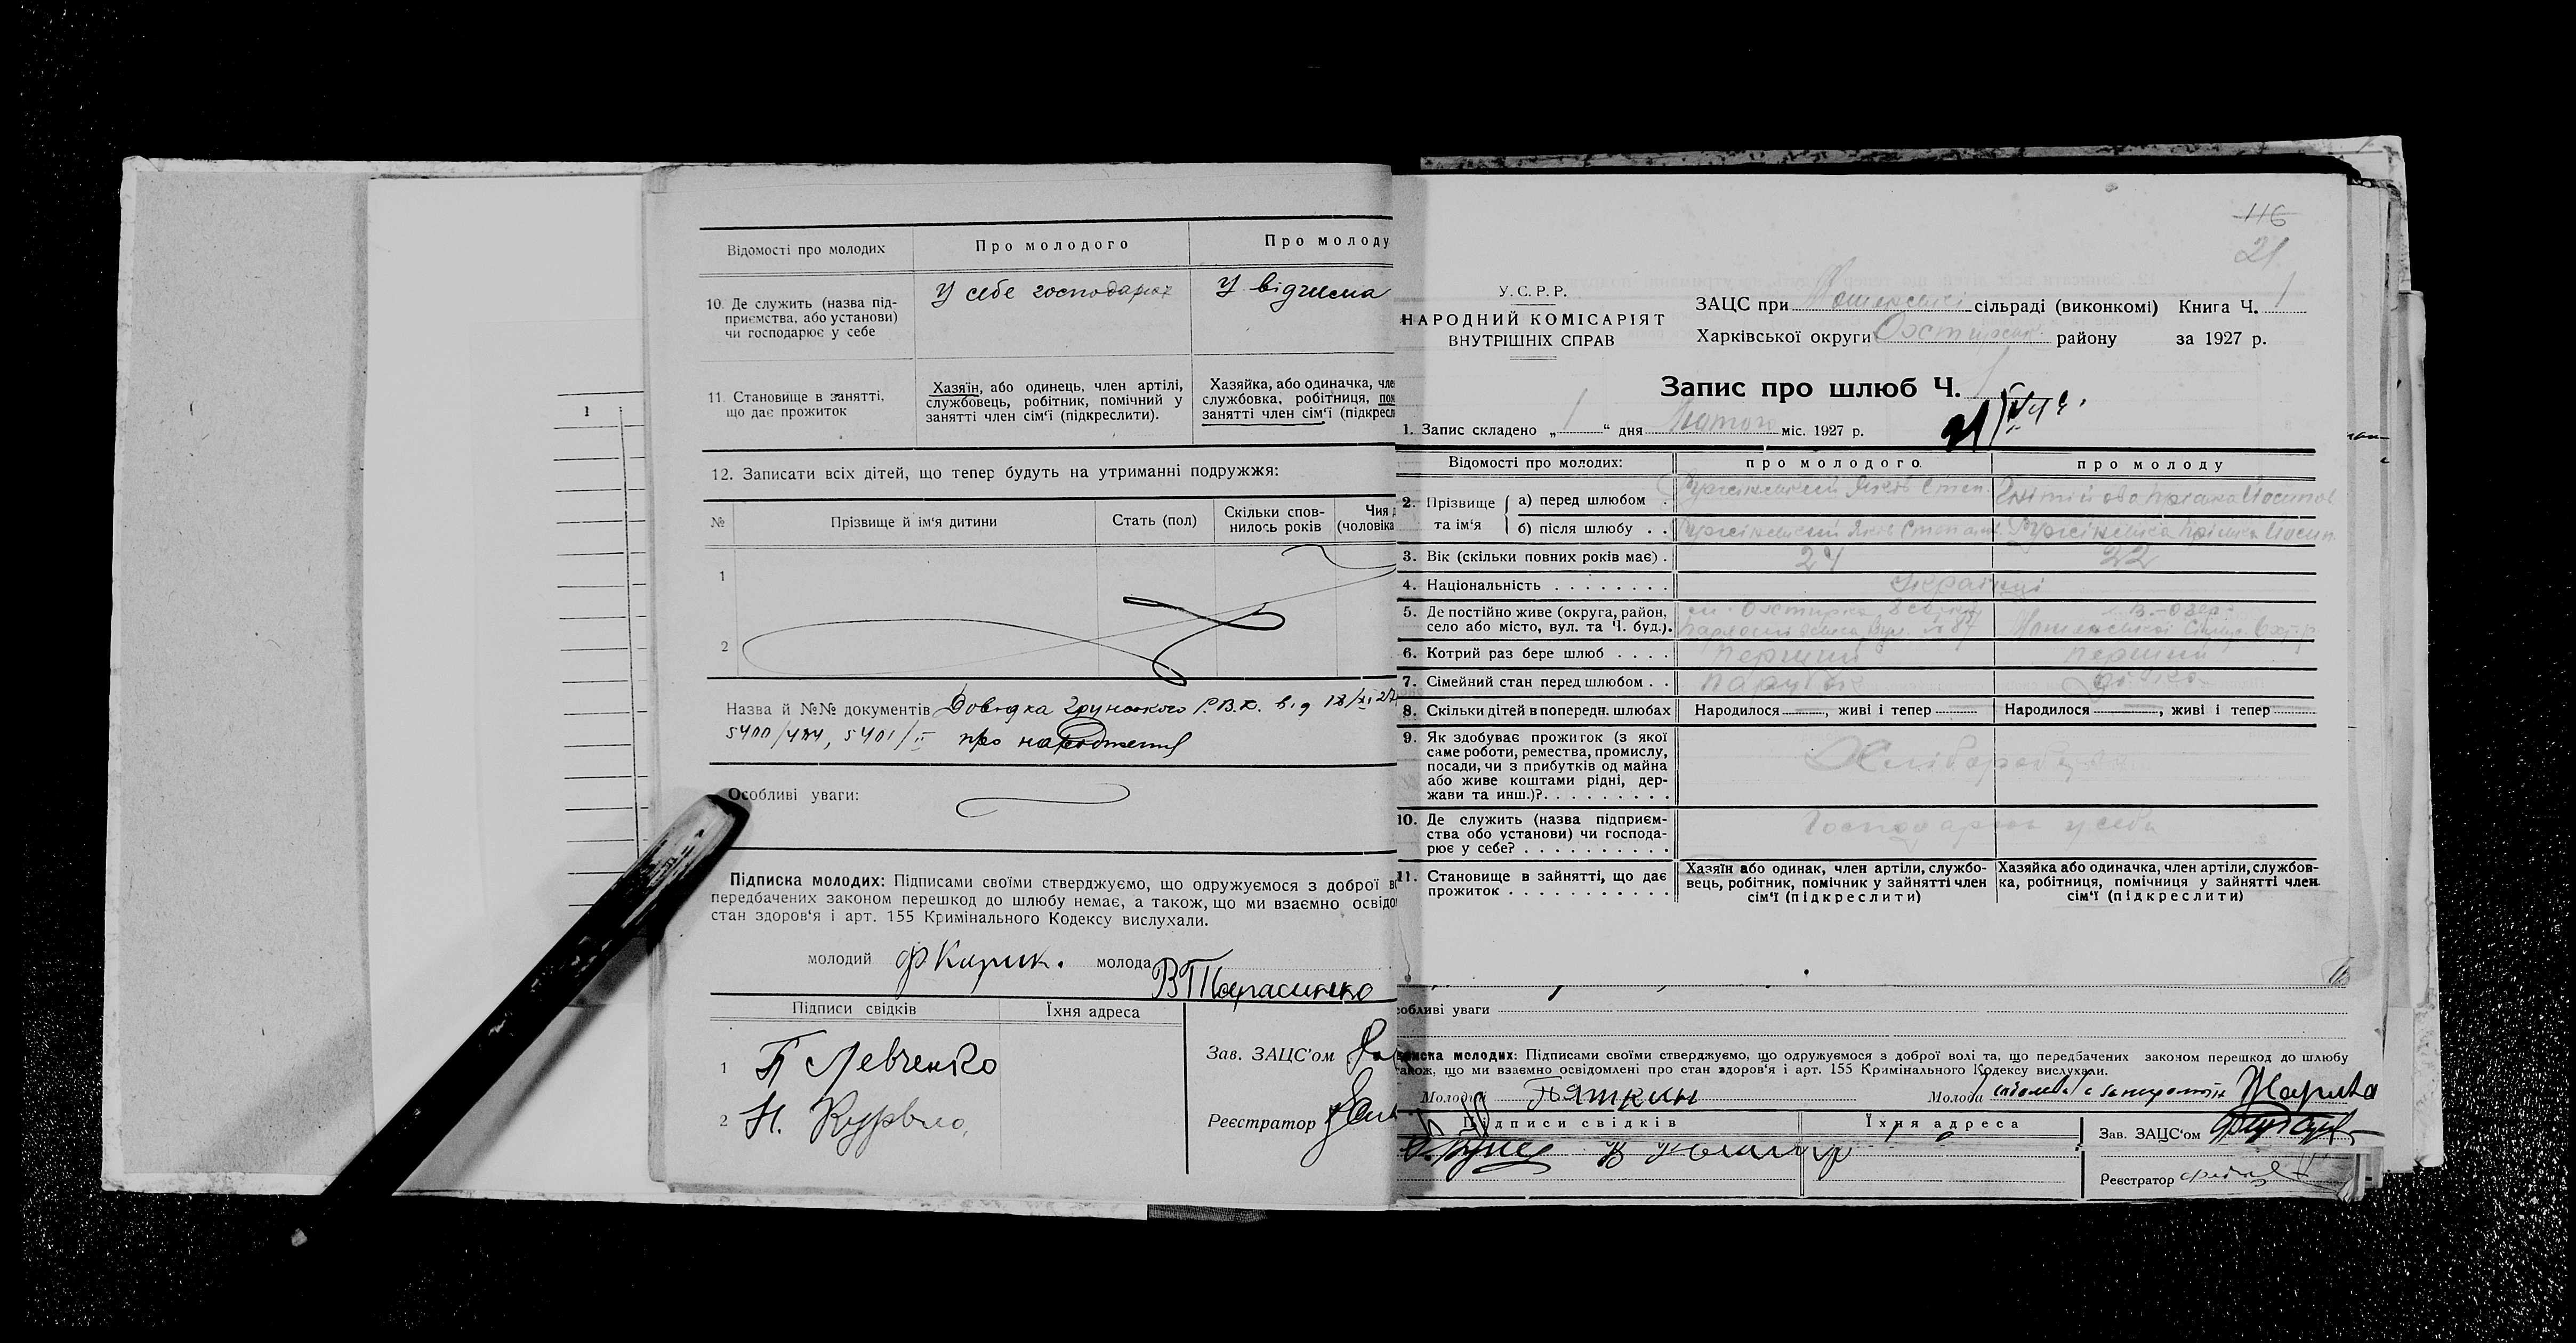 Відомості про молодих
Про молодого
Про молоду
10. Де служить (назва під-
приємства, або установи)
чи господарює у себе
У себе господарює
У вітчима
11. Становище в занятті,
що дає прожиток
Хазяїн, або одинець, член артілі,
службовець, робітник, помічний у
занятті член сім'ї (підкреслити).
Хазяйка, або одиначка, чле
службовка, робітниця, пом
занятті член сім'ї (підкресл
12. Записати всіх дітей, що тепер будуть на утриманні подружжя:
№
Прізвище й ім'я дитини
Стать (пол)
Скільки спов-
нилось років
Чия д
(чоловіка
1
2
Назва й №№ документів Довідка Грунського Р.В.К. від 18/XI 27
5400/484, 5401/II про народження
Особливі уваги:
Підписка молодих: Підписами своїми стверджуємо, що одружуємося з доброї во
передбачених законом перешкод до шлюбу немає, а також, що ми взаємно освідо
стан здоров'я і арт. 155 Кримінального Кодексу вислухали.
молодий Ф Кирик. молода В Тарасенко
Підписи свідків
Їхня адреса
1 П Левченко
2 Н. Курило
Зав. ЗАЦС'ом
Реєстратор
1
116
21
У. С. Р. Р.
НАРОДНИЙ КОМІСАРІЯТ
ВНУТРІШНІХ СПРАВ
ЗАЦС при сільраді (виконкомі) Книга Ч. 1
Харківської округи Охтирськ району за 1927 р.
Запис про шлюб Ч. 1
1. Запис складено „ 1 “ дня Лютого міс. 1927 р.
Відомості про молодих:
про молодого
про молоду
2. Прізвище та ім'я
а) перед шлюбом
Яків Степ.
б) після шлюбу
Яків Степан
3. Вік (скільки повних років має)
24
22
4. Національність
Українці
5. Де постійно живе (округа, район,
село або місто, вул. та Ч. буд.)
м. Охтирка
6. Котрий раз бере шлюб
перший
перший
7. Сімейний стан перед шлюбом
парубок
дівка
8. Скільки дітей в попередн. шлюбах
Народилося , живі і тепер
Народилося , живі і тепер
9. Як здобуває прожиток (з якої
саме роботи, ремества, промислу,
посади, чи з прибутків од майна
або живе коштами рідні, дер-
жави та инш.)?
10. Де служить (назва підприєм-
ства обо установи) чи господа-
рює у себе?
Господарює у себе
11. Становище в зайнятті, що дає
прожиток
Хазяїн або одинак, член артіли, службо-
вець, робітник, помічник у зайнятті член
сім'ї (підкреслити)
Хазяйка або одиначка, член артіли, службов-
ка, робітниця, помічниця у зайнятті член
сім'ї (підкреслити)
собливі уваги
писка молодих: Підписами своїми стверджуємо, що одружуємося з доброї волі та, що передбачених законом перешкод до шлюбу
акож, що ми взаємно освідомлені про стан здоров'я і арт. 155 Кримінального Кодексу вислухали.
Молодий Пяткин
Молода
Підписи свідків
Їхня адреса
Зав. ЗАЦС'ом
Реєстратор